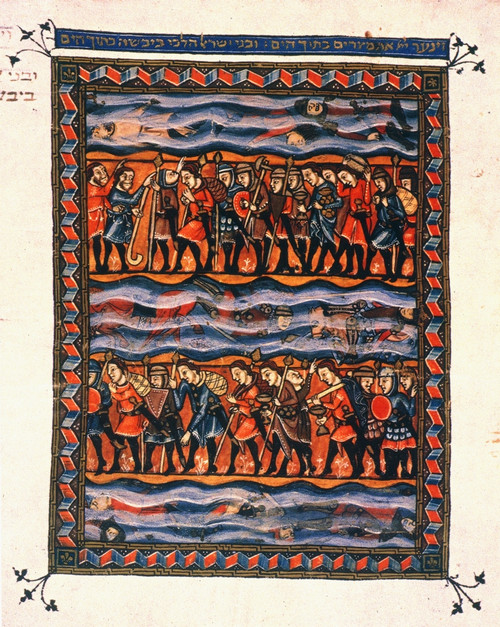 וינער ייי את מצרים בתוך הים : ובני ישראל הלכו ביבשה בתוך הים
ובני